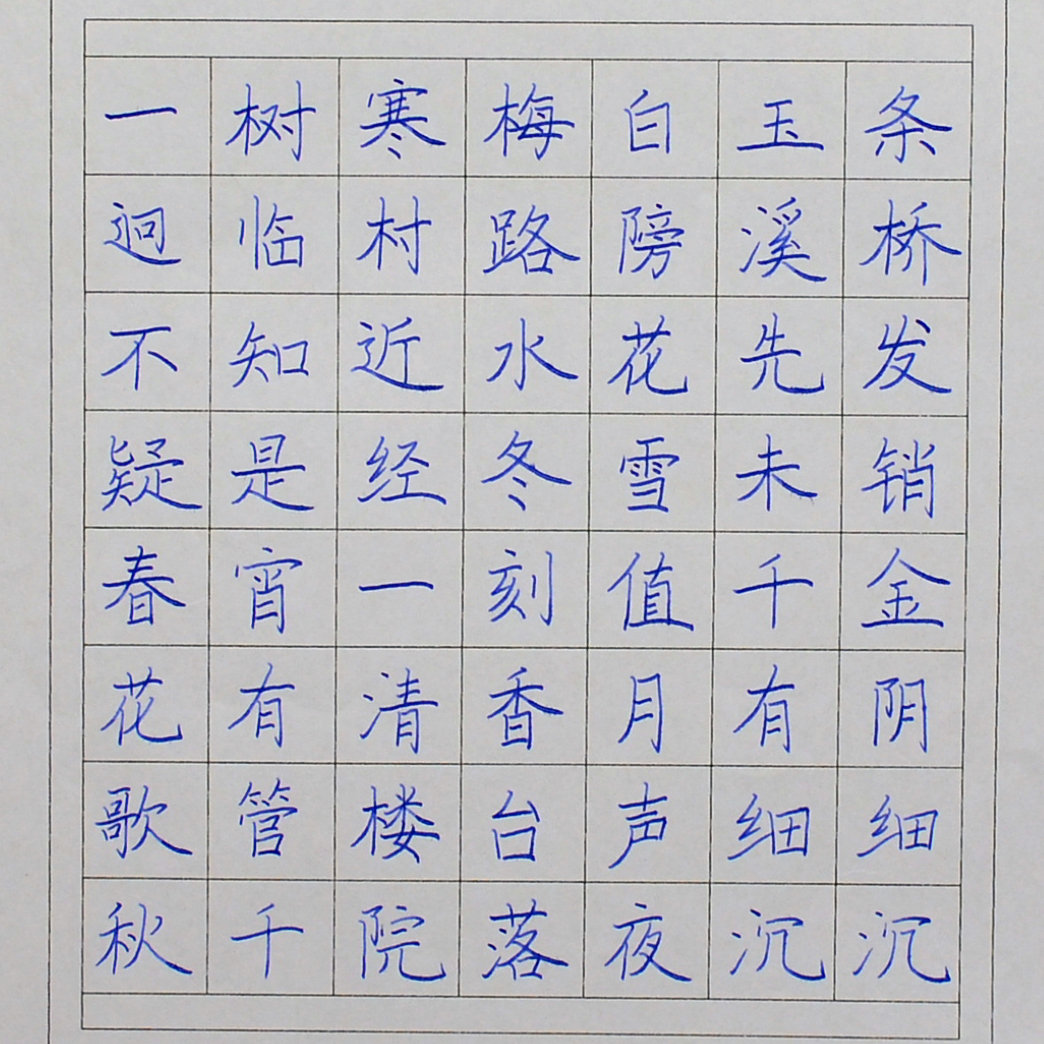 一树寒梅白玉条
迥临村路傍溪桥
不知近水花先发
疑是经冬雪未销
春宵一刻值千金
花有清香月有阴
歌管楼台声细细
秋千院落夜沉沉